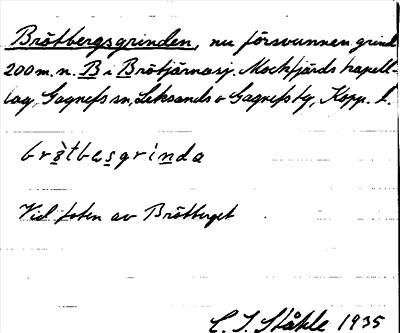 Brötbergsgrinden, nu försvunnen grind
200 m. n. B i Brötjärnasj. Mockfjärds kapell-
lag, Gagnefs sn, Leksands o Gagnefs tg, Kopp. l.
brö̀tbesgrinda
Vid foten av Brötberget
C. I. Ståhle 1935